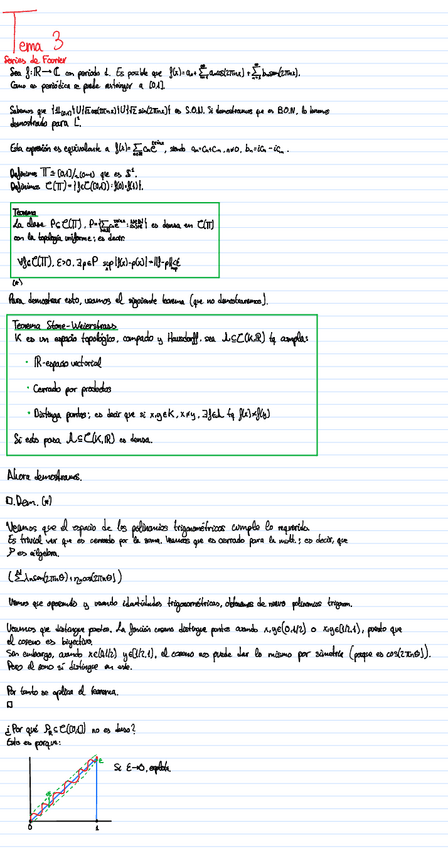 Tema 3
Series de Fourier
Sea f: ℝ → ℂ con periodo 1. Es posible que f(x) = a₀ + Σ aₙcos(2πnx) + Σ bₙsen(2πnx).
Como es periódica se puede restringir a [0,1].
Sabemos que {1_[0,1]} ∪ {√2 cos(2πnx)} ∪ {√2 sen(2πnx)} es S.O.N. Si demostramos que es B.O.N, lo hemos
demostrado para L².
Esta expresión es equivalente a f(x) = Σ cₙe^{2πinx}, siendo aₙ = cₙ + c₋ₙ, n≠0, bₙ = icₙ - ic₋ₙ.
Definimos 𝕋 = [0,1]/ₙ(0~1) que es S¹.
Definimos C(𝕋) = {f ∈ C([0,1]) : f(0) = f(1)}.
Teorema
La clase P ⊆ C(𝕋), es densa en C(𝕋)
con la topología uniforme; es decir:
∀f ∈ C(𝕋), ε>0, ∃p ∈ P sup |f(x) - p(x)| = ||f - p|| < ε
(*)
Para demostrar esto, usaremos el siguiente teorema (que no demostraremos).
Teorema Stone-Weierstrass
K es un espacio topológico, compacto y Hausdorff, sea A ⊆ C(K,ℝ) tq cumpla:
· ℝ-espacio vectorial
· Cerrado por productos
· Distinga puntos; es decir que si x,y ∈ K, x≠y, ∃f ∈ A tq f(x) ≠ f(y)
Si esto pasa A ⊆ C(K,ℝ) es densa.
Ahora demostramos.
□. Dem. (*)
Veamos que el espacio de los polinomios trigonométricos cumple lo requerido.
Es trivial ver que es cerrado por la suma. Veamos que es cerrado para la mult.; es decir, que
P es álgebra.
(Σ λₙsen(2πnΘ) + ηₙcos(2πnΘ))
Vemos que operando y usando identidades trigonométricas, obtenemos de nuevo polinomios trigon.
Veamos que distingue puntos. La función coseno distingue puntos cuando x,y ∈ [0,1/2) o x,y ∈ [1/2,1), puesto que
el coseno es biyectivo.
Sin embargo, cuando x ∈ (0,1/2) y ∈ [1/2,1), el coseno nos puede dar lo mismo por simetría (porque es cos(2πnΘ)).
Pero el seno sí distingue en este.
Por tanto se aplica el teorema.
□
¿Por qué ⊆ C([0,1]) no es denso?
Esto es porque:
Si ε→0, explota
ε
0
1